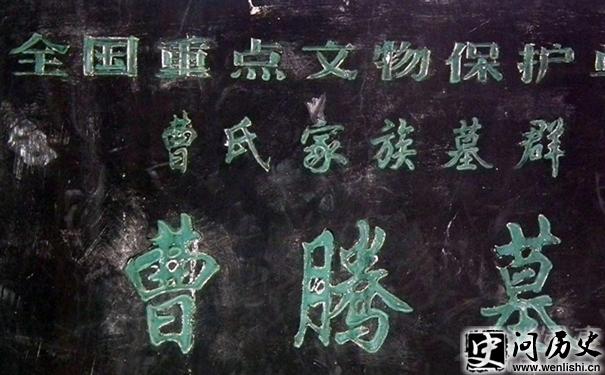 全国重点文物保护
曹氏家族墓群
曹腾墓
史问历史
www.wenlishi.cn